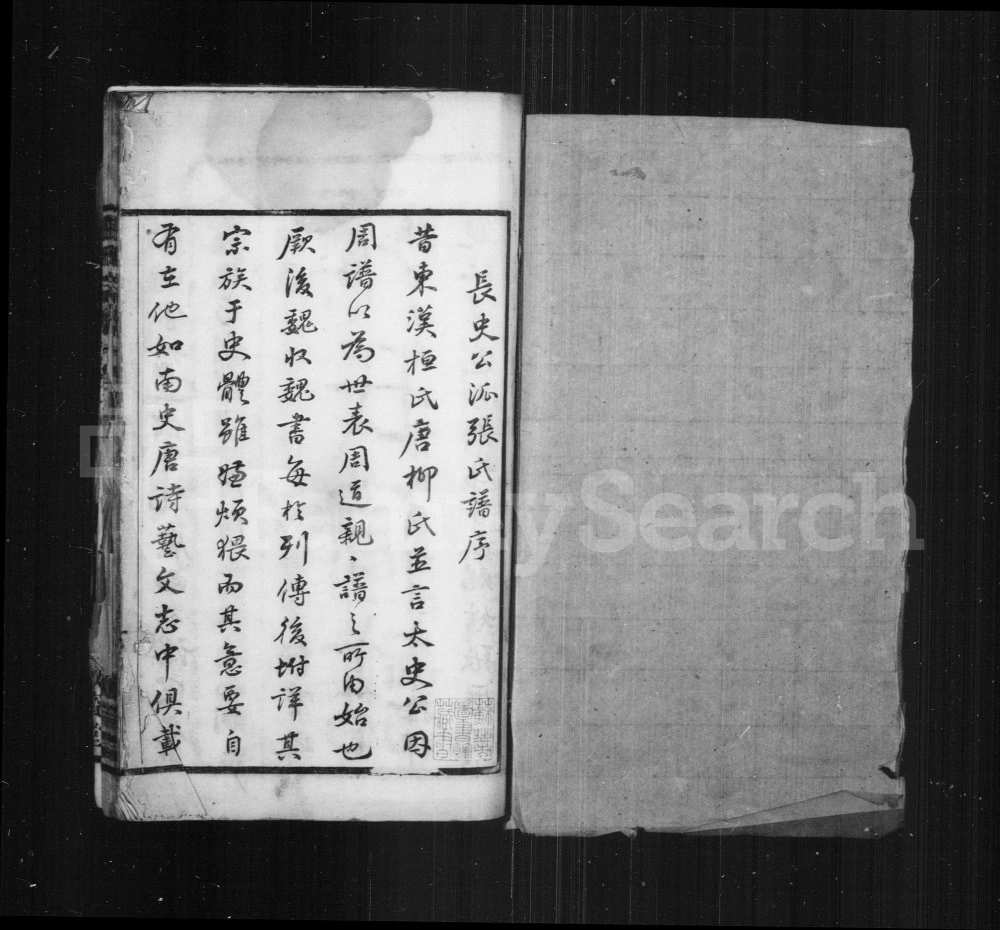 長史公派張氏譜序
昔東漢桓氏唐柳氏並言太史公因
周譜以為世表周道親〻譜之所由始也
厥後魏收魏書每於列傳後坿詳其
宗族于史體雖嫌煩猥而其意要自
有在他如南史唐詩藝文志中俱載
FamilySearch